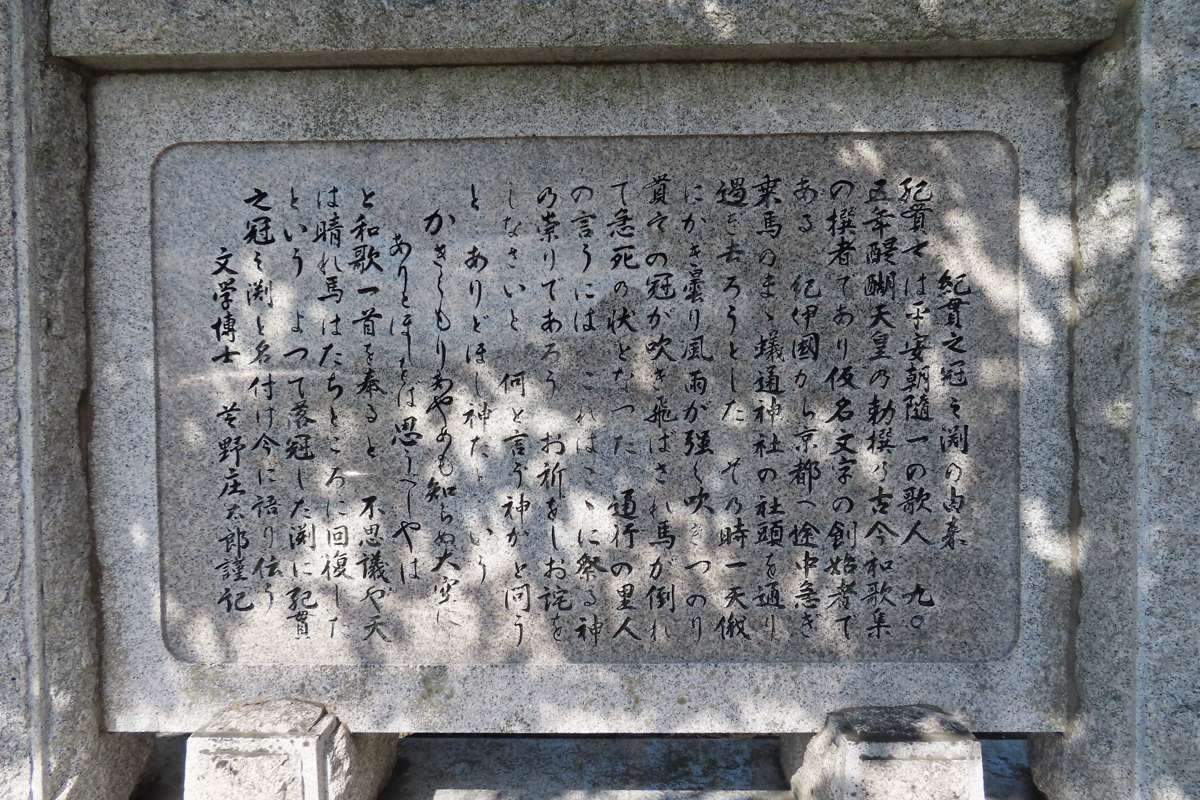 紀貫之冠之渕の由来
紀貫之は平安朝随一の歌人　九〇
五年醍醐天皇乃勅撰乃古今和歌集
の撰者であり仮名文字の創始者で
ある　紀伊國から京都へ途中急ぎ
乗馬のまゝ蟻通神社の社頭を通り
過ぎ去ろうとした　その時一天俄
にかき曇り風雨が強く吹きつのり
貫之の冠が吹き飛ばされ馬が倒れ
て急死の状となった　通行の里人
の言うには　これはこゝに祭る神
乃祟りであろう　お祈をしお詫を
しなさいと　何と言う神かと問う
と　ありどほし神だという
かきくもりあやめも知らぬ大空に
ありとほしをば思うべしやは
と和歌一首を奉ると　不思議や天
は晴れ馬はたちところに回復した
という　よって落冠した渕に紀貫
之冠之渕と名付け今に語り伝う
文学博士　野庄太郎謹記